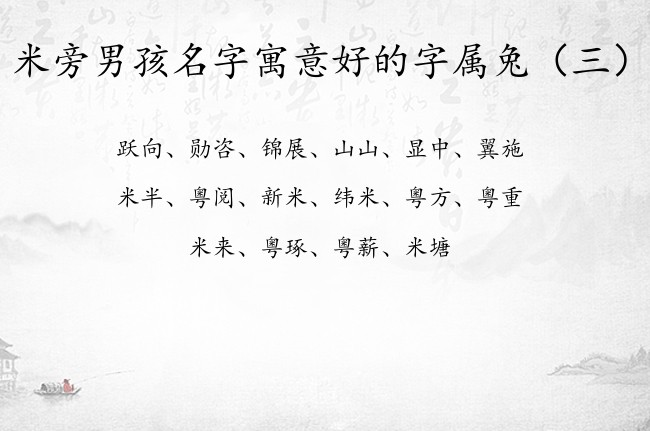 米旁男孩名字寓意好的字属兔（三）
跃向、勋咨、锦展、山山、显中、翼施
米半、粤阅、新米、纬米、粤方、粤重
米来、粤琢、粤薪、米塘